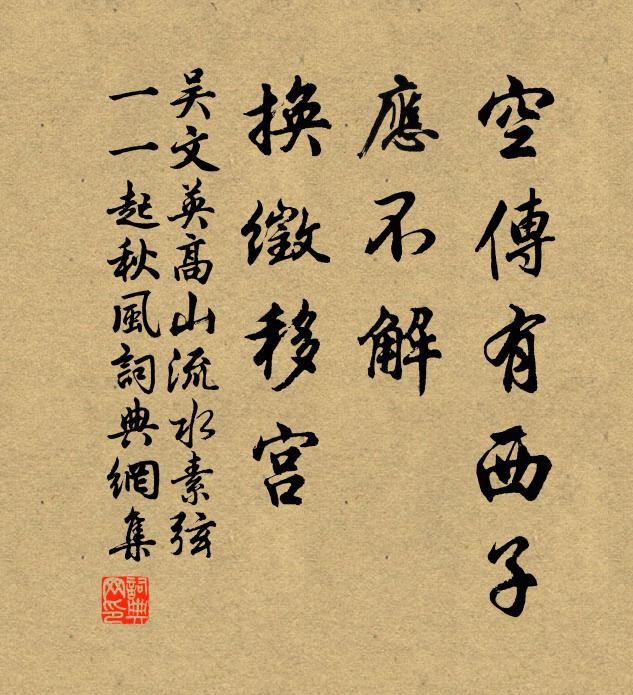 空傳有西子
應不解
換徵移宮
吴文英高山流水素弦
一一起秋風詞典網集
詞典
网印